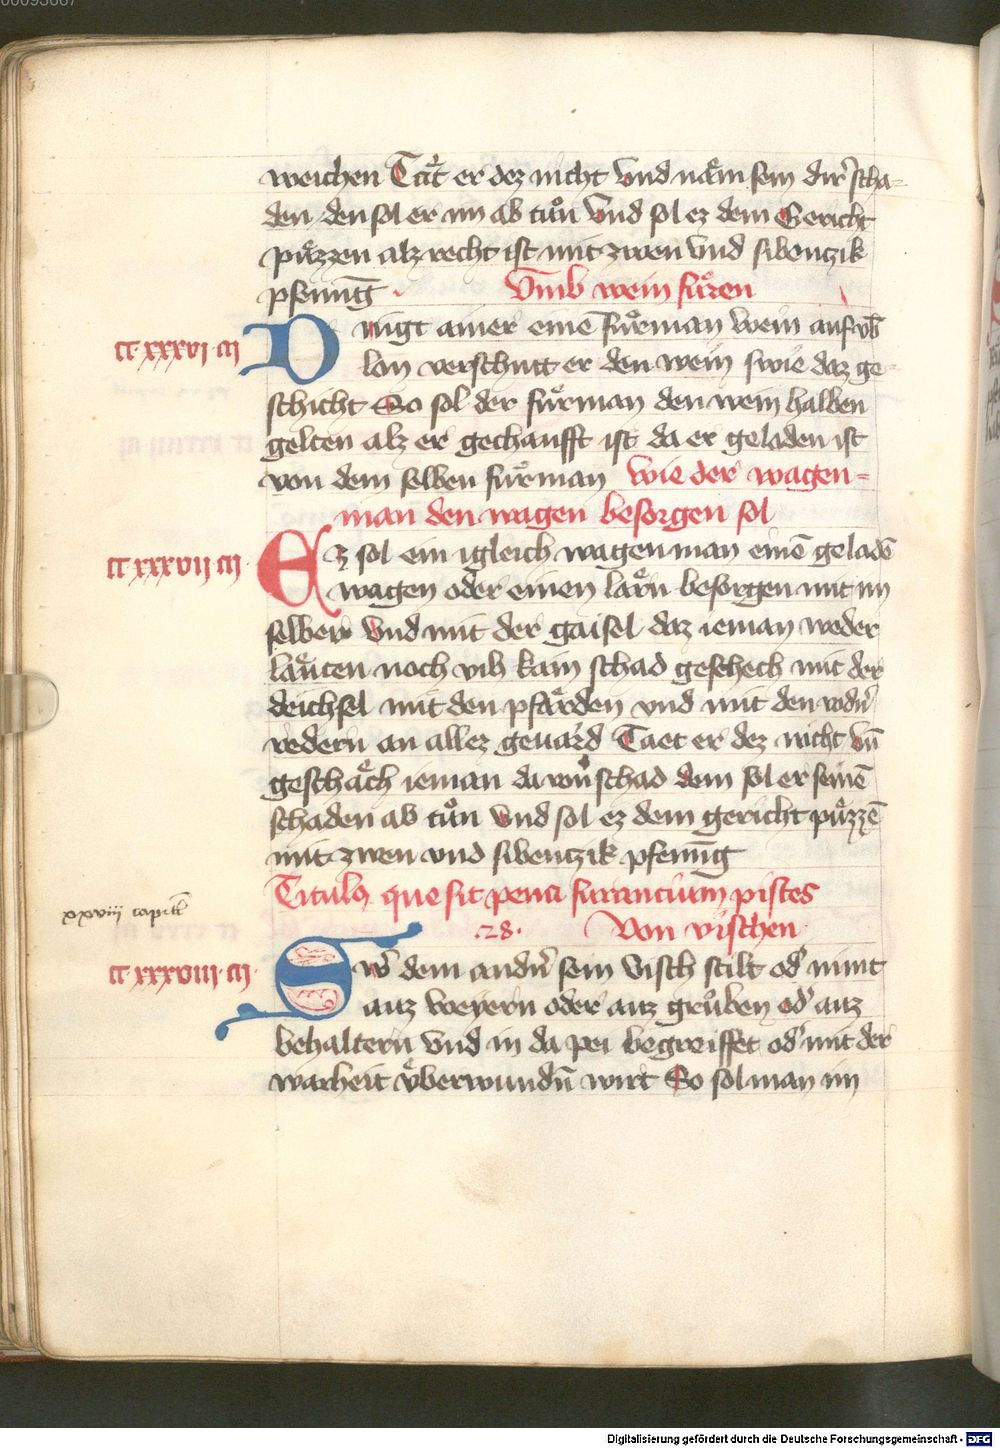 weichen Taͤt er dez nicht Vnd naͤm sein dirr scha-
den den sol er im ab tuͦn Vnd sol ez dem Gericht
puͤzzen alz recht ist mit zwen Vnd sibentzik
pfening̅ · Vmb wein fuͤren
ct xxxvi cij Dingt ainer eine̅ fuͦrman wein auf vb̅
lon verschutt er den wein swie daz ge-
schicht So sol der fuͦrman den wein halben
gelten alz er gechaufft ist da er geladen ist
von dem selben fuͦrman wie der wagen-
man den wagen besorgen sol
ct xxxvii cij Ez sol ein igleich wagenman eine̅ gelade̅
wagen oder einen laͤrn besorgen mit im
selber Vnd mit der gaisel daz ieman weder
laͤuten noch vih kain schad geschech mit der
deichsel mit den pfaͤrden vnd mit den
redern an allez geuaͤrd Taet er dez nicht Vn̅
geschaͤch ieman da von schad dem sol er seine̅
schaden ab tuͦn Vnd sol ez dem gericht puͤzze̅
mit zwen vnd sibentzik pfening̅
Titulus que sit pena furancium pisces
xxviii capit̅l
.28. Von vischen
ct xxxviii cij · Swer dem andern sein Visch stilt od' nimt
auz weyern oder auz gruͦben od' auz
behaltern Vnd in da pei begreiffet od' mit der
warheit vͤberwunden wirt So sol man im
Digitalisierung gefördert durch die Deutsche Forschungsgemeinschaft - DFG